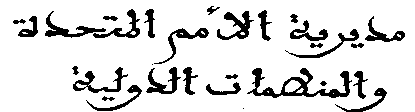 مديرية الأمم المتحدة
والمنظمات الدولية